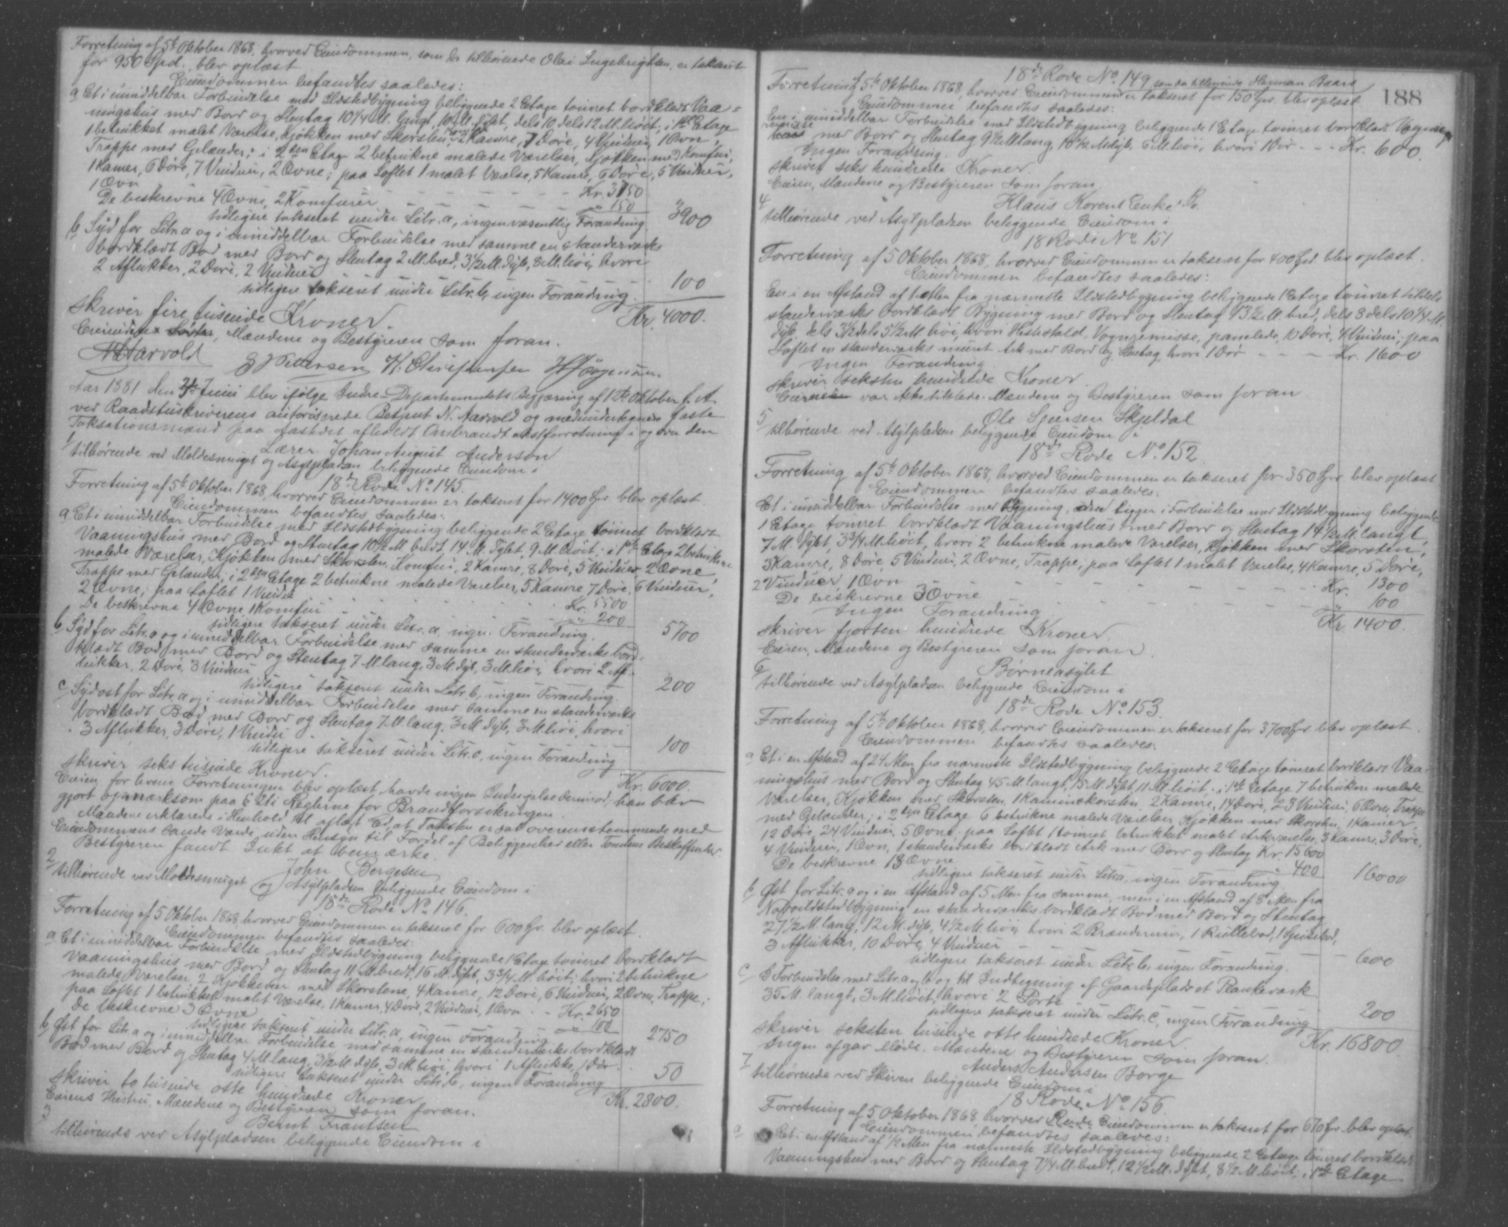 Forretning af 5te Oktober 1868, hvorved Eiendommen, som da tilhørende Olai Ingebrigtsen, er takseret
for 950 Spd. blev oplæst
Eiendommen befandtes saaledes:
a, Et i umiddelbar Forbindelse med Ildstedbygning beliggende 2 Etage tømret bordklædt Vaa-
ningshus med Bord og Stentag 10 1/4 M. langt, 10 M. dybt, dels 10 dels 12 M. høit; i 1ste Etage
1 betrukket malet Værelse, Kjøkken med Skorsten, Kamre, 7 Døre, 4 Vinduer, 1 Ovn,
Trappe med Gelænder; i 2den Etage 2 betrukne malede Værelser, Kjøkken med Komfur,
1 Kamer, 6 Døre, 7 Vinduer, 2 Ovne; paa Loftet 1 malet Værelse, 5 Kamre, 6 Døre, 5 Vinduer,
1 Ovn
De beskrevne 4 Ovne, 2 Komfurer Kr. 3750
" 150
tidligere takseret under Litr. a, ingen væsentlig Forandring 3900
b, Syd for Litr. a og i umiddelbar Forbindelse med samme en standerværks
bordklædt Bod med Bord og Stentag 2 M. bred, 3 1/2 M. dyb, 3 M. høi, hvori
2 Aflukker, 2 Døre, 2 Vinduer
tidligere takseret under Litr. b, ingen Forandring 100
Kr. 4000.
skriver fire tusinde Kroner.
Eierinden, Mændene og Bestyreren som foran.
N Aarvold J J Petersen H. Christophersen H Jørgensen
Aar 1881 den Juni blev ifølge Indre-Departementets Begjæring af 1ste Oktober f. A.
ved Raadstuskriverens autoriserede Betjent N. Aarvold og medundertegnede faste
Taksationsmænd paa Aastedet afholdt Ombrandtakstforretning i og over den
1, Lærer Johan August Anderson
tilhørende ved Moldesmuget og Asylpladsen beliggende Eiendom i
18de Rode No 145.
Forretning af 5te Oktober 1868, hvorved Eiendommen er takseret for 1400 Spd. blev oplæst
Eiendommen befandtes saaledes:
a, Et i umiddelbar Forbindelse med Ildstedbygning beliggende 2 Etage tømret bordklædt
Vaaningshus med Bord og Stentag 10 1/2 M. bredt, 14 M. dybt, 9 M. høit; i 1ste Etage 2 betrukne
malede Værelser, Kjøkken med Skorsten, Komfur, 2 Kamre, 8 Døre, 5 Vinduer, 2 Ovne,
Trappe med Gelænder, i 2den Etage 2 betrukne malede Værelser, 5 Kamre, 7 Døre, 6 Vinduer,
2 Ovne; paa Loftet 1 Vindu
De beskrevne 4 Ovne, 1 Komfur Kr. 5500
" 200
tidligere takseret under Litr. a, ingen Forandring. 5700
b, Syd for Litr. a og i umiddelbar Forbindelse med samme en standerværks bord-
klædt Bod med Bord og Stentag 7 M. lang, 3 M. dyb, 3 M. høi, hvori 2 Af-
lukker, 2 Døre, 3 Vinduer
tidligere takseret under Litr. b, ingen Forandring 200
c, Sydost for Litr. a og i umiddelbar Forbindelse med samme en standerværks
bordklædt Bod med Bord og Stentag 7 M. lang, 3 M. dyb, 3 M. høi, hvori
3 Aflukker, 3 Døre, 1 Vindu
tidligere takseret under Litr. c, ingen Forandring 100
Kr. 6000.
skriver seks tusinde Kroner.
Eieren for hvem Forretningen blev oplæst, havde ingen Indsigelse derimod; han blev
gjort opmærksom paa § 26 i Reglerne for Brandforsikringen.
Mændene erklærede i Henhold til aflagt Ed, at Taksten er sat overensstemmende med
Eiendommens sande Værdi, uden Hensyn til Fordel af Beliggenhed eller Tomtens Beskaffenhed.
Bestyreren fandt Intet at bemærke.
2, John Bergesen
tilhørende ved Moldesmuget og Asylpladsen beliggende Eiendom i
18de Rode No 146.
Forretning af 5 Oktober 1868 hvorved Eiendommen er takseret for 600 Spd. blev oplæst.
Eiendommen befandtes saaledes:
a, Et i umiddelbar Forbindelse med Ildstedbygning beliggende 1 Etage tømret bordklædt
Vaaningshus med Bord og Stentag 11 M. bredt, 16 M. dybt, 3 3/4 M. høit; hvori 2 betrukne
malede Værelser, 2 Kjøkkener med Skorstene, 4 Kamre, 12 Døre, 6 Vinduer, 2 Ovne, Trappe;
paa Loftet 1 betrukket malet Værelse, 1 Kamer, 4 Døre, 2 Vinduer, 1 Ovn Kr. 2650
de beskrevne 3 Ovne " 100
tidligere takseret under Litr. a, ingen Forandring 2750
b, Øst for Litr. a og i umiddelbar Forbindelse med samme en standerværks bordklædt
Bod med Bord og Stentag 4 M. lang, 3 1/2 M. dyb, 3 M. høi, hvori 1 Aflukke, 1 Dør.
tidligere takseret under Litr. b, ingen Forandring 50
Kr. 2800.
skriver to tusinde otte hundrede Kroner.
Eierens Hustru, Mændene og Bestyreren som foran.
3, Bernt Frantsen
tilhørende ved Asylpladsen beliggende Eiendom i
188
18de Rode No 149
Forretning af 5te Oktober 1868, hvorved Eiendommen som da tilhørende Herman Baars er takseret for 150 Spd. blev oplæst
Eiendommen befandtes saaledes:
En i umiddelbar Forbindelse med Ildstedbygning beliggende 1 Etage tømret bordklædt Vogn-
remisse med Bord og Stentag 9 1/2 M. lang, 10 1/2 M. dyb, 6 M. høi, hvori 1 Dør - - Kr. 600.
Ingen Forandring.
skriver seks hundrede Kroner.
Eieren, Mændene og Bestyreren som foran
4, Klaus Korens Enke
tilhørende ved Asylpladsen beliggende Eiendom i
18 Rode No 151
Forretning af 5 Oktober 1868, hvorved Eiendommen er takseret for 400 Spd. blev oplæst.
Eiendommen befandtes saaledes:
En i en Afstand af 1 Alen fra nærmeste Ildstedbygning beliggende 1 Etage tømret tildels
standerværks bordklædt Bygning med Bord og Stentag 13 1/2 M. bred, dels 8 dels 10 1/4 M.
dyb, dels 3 1/2 dels 5 1/2 M. høi, hvori Hestestald, Vognremisse, panelede, 10 Døre, 4 Vinduer; paa
Loftet en standerværks muret Ark med Bord og Stentag hvori 1 Dør - - - Kr. 1600
Ingen Forandring.
skriver seksten hundrede Kroner.
Eierinden var ikke tilstede. Mændene og Bestyreren som foran
5, Ole Sjursen Skjeldal
tilhørende ved Asylpladsen beliggende Eiendom i
18de Rode No 152
Forretning af 5te Oktober 1868, hvorved Eiendommen er takseret for 350 Spd. blev oplæst
Eiendommen befandtes saaledes:
Et i umiddelbar Forbindelse med Bygning, der ligger i Forbindelse med Ildstedbygning beliggende
1 Etage tømret bordklædt Vaaningshus med Bord og Stentag 14 1/2 M. langt,
7 M. dybt, 3 3/4 M. høit, hvori 2 betrukne malede Værelser, Kjøkken med Skorsten,
3 Kamre, 8 Døre, 5 Vinduer, 2 Ovne, Trappe; paa Loftet 1 malet Værelse, 4 Kamre, 5 Døre,
2 Vinduer, 1 Ovn Kr. 1300
De beskrevne 3 Ovne 100
Ingen Forandring Kr. 1400.
skriver fjorten hundrede Kroner.
Eieren, Mændene og Bestyreren som foran.
6, Børneasylet
tilhørende ved Asylpladsen beliggende Eiendom i
18de Rode No 153.
Forretning af 5te Oktober 1868, hvorved Eiendommen er takseret for 3700 Spd. blev oplæst.
Eiendommen befandtes saaledes:
a, Et i en Afstand af 2 1/2 Alen fra nærmeste Ildstedbygning beliggende 2 Etage tømret bordklædt Vaa-
ningshus med Bord og Stentag 45 M. langt, 15 M. dybt, 11 M. høit; i 1ste Etage 7 betrukne malede
Værelser, Kjøkken med Skorsten, 1 Kaminskorsten, 2 Kamre, 14 Døre, 23 Vinduer, 6 Ovne, Trappe
med Gelænder; i 2den Etage 6 betrukne malede Værelser, Kjøkken med Skorsten, 1 Kamer
12 Døre, 24 Vinduer, 5 Ovne; paa Loftet 1 tømret betrukket malet Arkværelse, 3 Kamre, 3 Døre,
4 Vinduer, 1 Ovn, 1 standerværks bordklædt Ark med Bord og Stentag Kr. 15600
De beskrevne 13 Ovne " 400
tidligere takseret under Litr. a, ingen Forandring 16000
b, Øst for Litr. a og i en Afstand af 5 Alen fra samme, men i en Afstand af 8 Alen fra
Naboildstedbygning en standerværks bordklædt Bod med Bord og Stentag
27 1/2 M. lang, 12 M. dyb, 4 1/2 M. høi hvori 2 Brænderum, 1 Rullebod, 1 Gjemmebod,
3 Aflukker, 10 Døre, 4 Vinduer
tidligere takseret under Litr. b, ingen Forandring. 600
c, I Forbindelse med Litr. a og b og til Indhegning af Gaardspladset Plankeværk
35 M. langt, 3 M. høit, hvori 2 Porte
tidligere takseret under Litr. c, ingen Forandring 200
Kr. 16800
skriver seksten tusinde otte hundrede Kroner
Ingen afgav Møde. Mændene og Bestyreren som foran.
7, Anders Andersen Borge
tilhørende ved Skiven beliggende Eiendom i
18 Rode No 156.
Forretning af 5 Oktober 1868, hvorved Eiendommen er takseret for 610 Spd. blev oplæst.
Eiendommen befandtes saaledes:
a, Et i en Afstand af 1/2 Alen fra nærmeste Ildstedbygning beliggende 2 Etage tømret bordklædt
Vaaningshus med Bord og Stentag 7 1/4 M. bredt, 12 1/2 M. dybt, 8 1/2 M. høit, i 1ste Etage